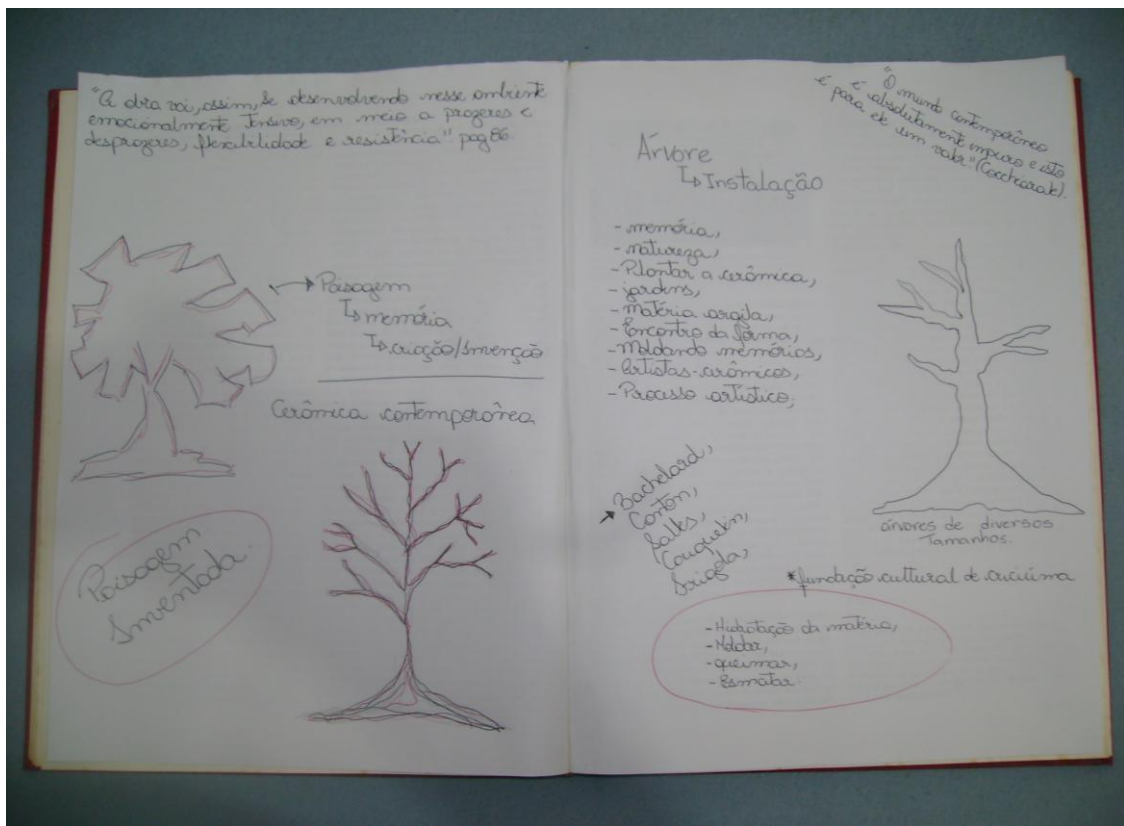 "A obra vai, assim, se desenvolvendo nesse ambiente
emocionalmente tensivo, em meio a prazeres e
desprazeres, flexibilidade e resistência" pag 86.
Paisagem
memória
criação/Invenção
Cerâmica contemporânea
Paisagem
Inventada.
"O mundo contemporâneo
é absolutamente impuro e isto
é para ele um valor" (Cocchiarale).
Árvore
Instalação
- memória,
- natureza,
- Plantar a cerâmica,
- jardins,
- Matéria argila,
- Encontro da forma,
- Moldando memórias,
- Artistas-cerâmicos,
- Processo artístico;
Bachelard,
Canton,
Salles,
Cauquelin,
árvores de diversos
Tamanhos.
*fundação cultural de criciúma
- Hidratação da matéria,
- Moldar,
- queimar,
- Esmaltar.